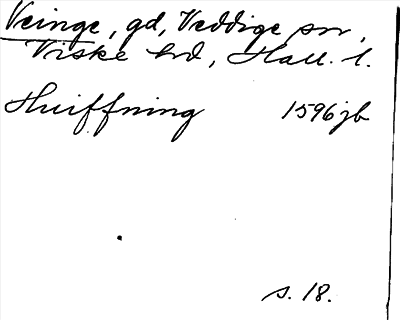 Veinge, gd, Veddige sn,
Viske hd, Hall. l.
Huiffning 1596 jb
s. 18.